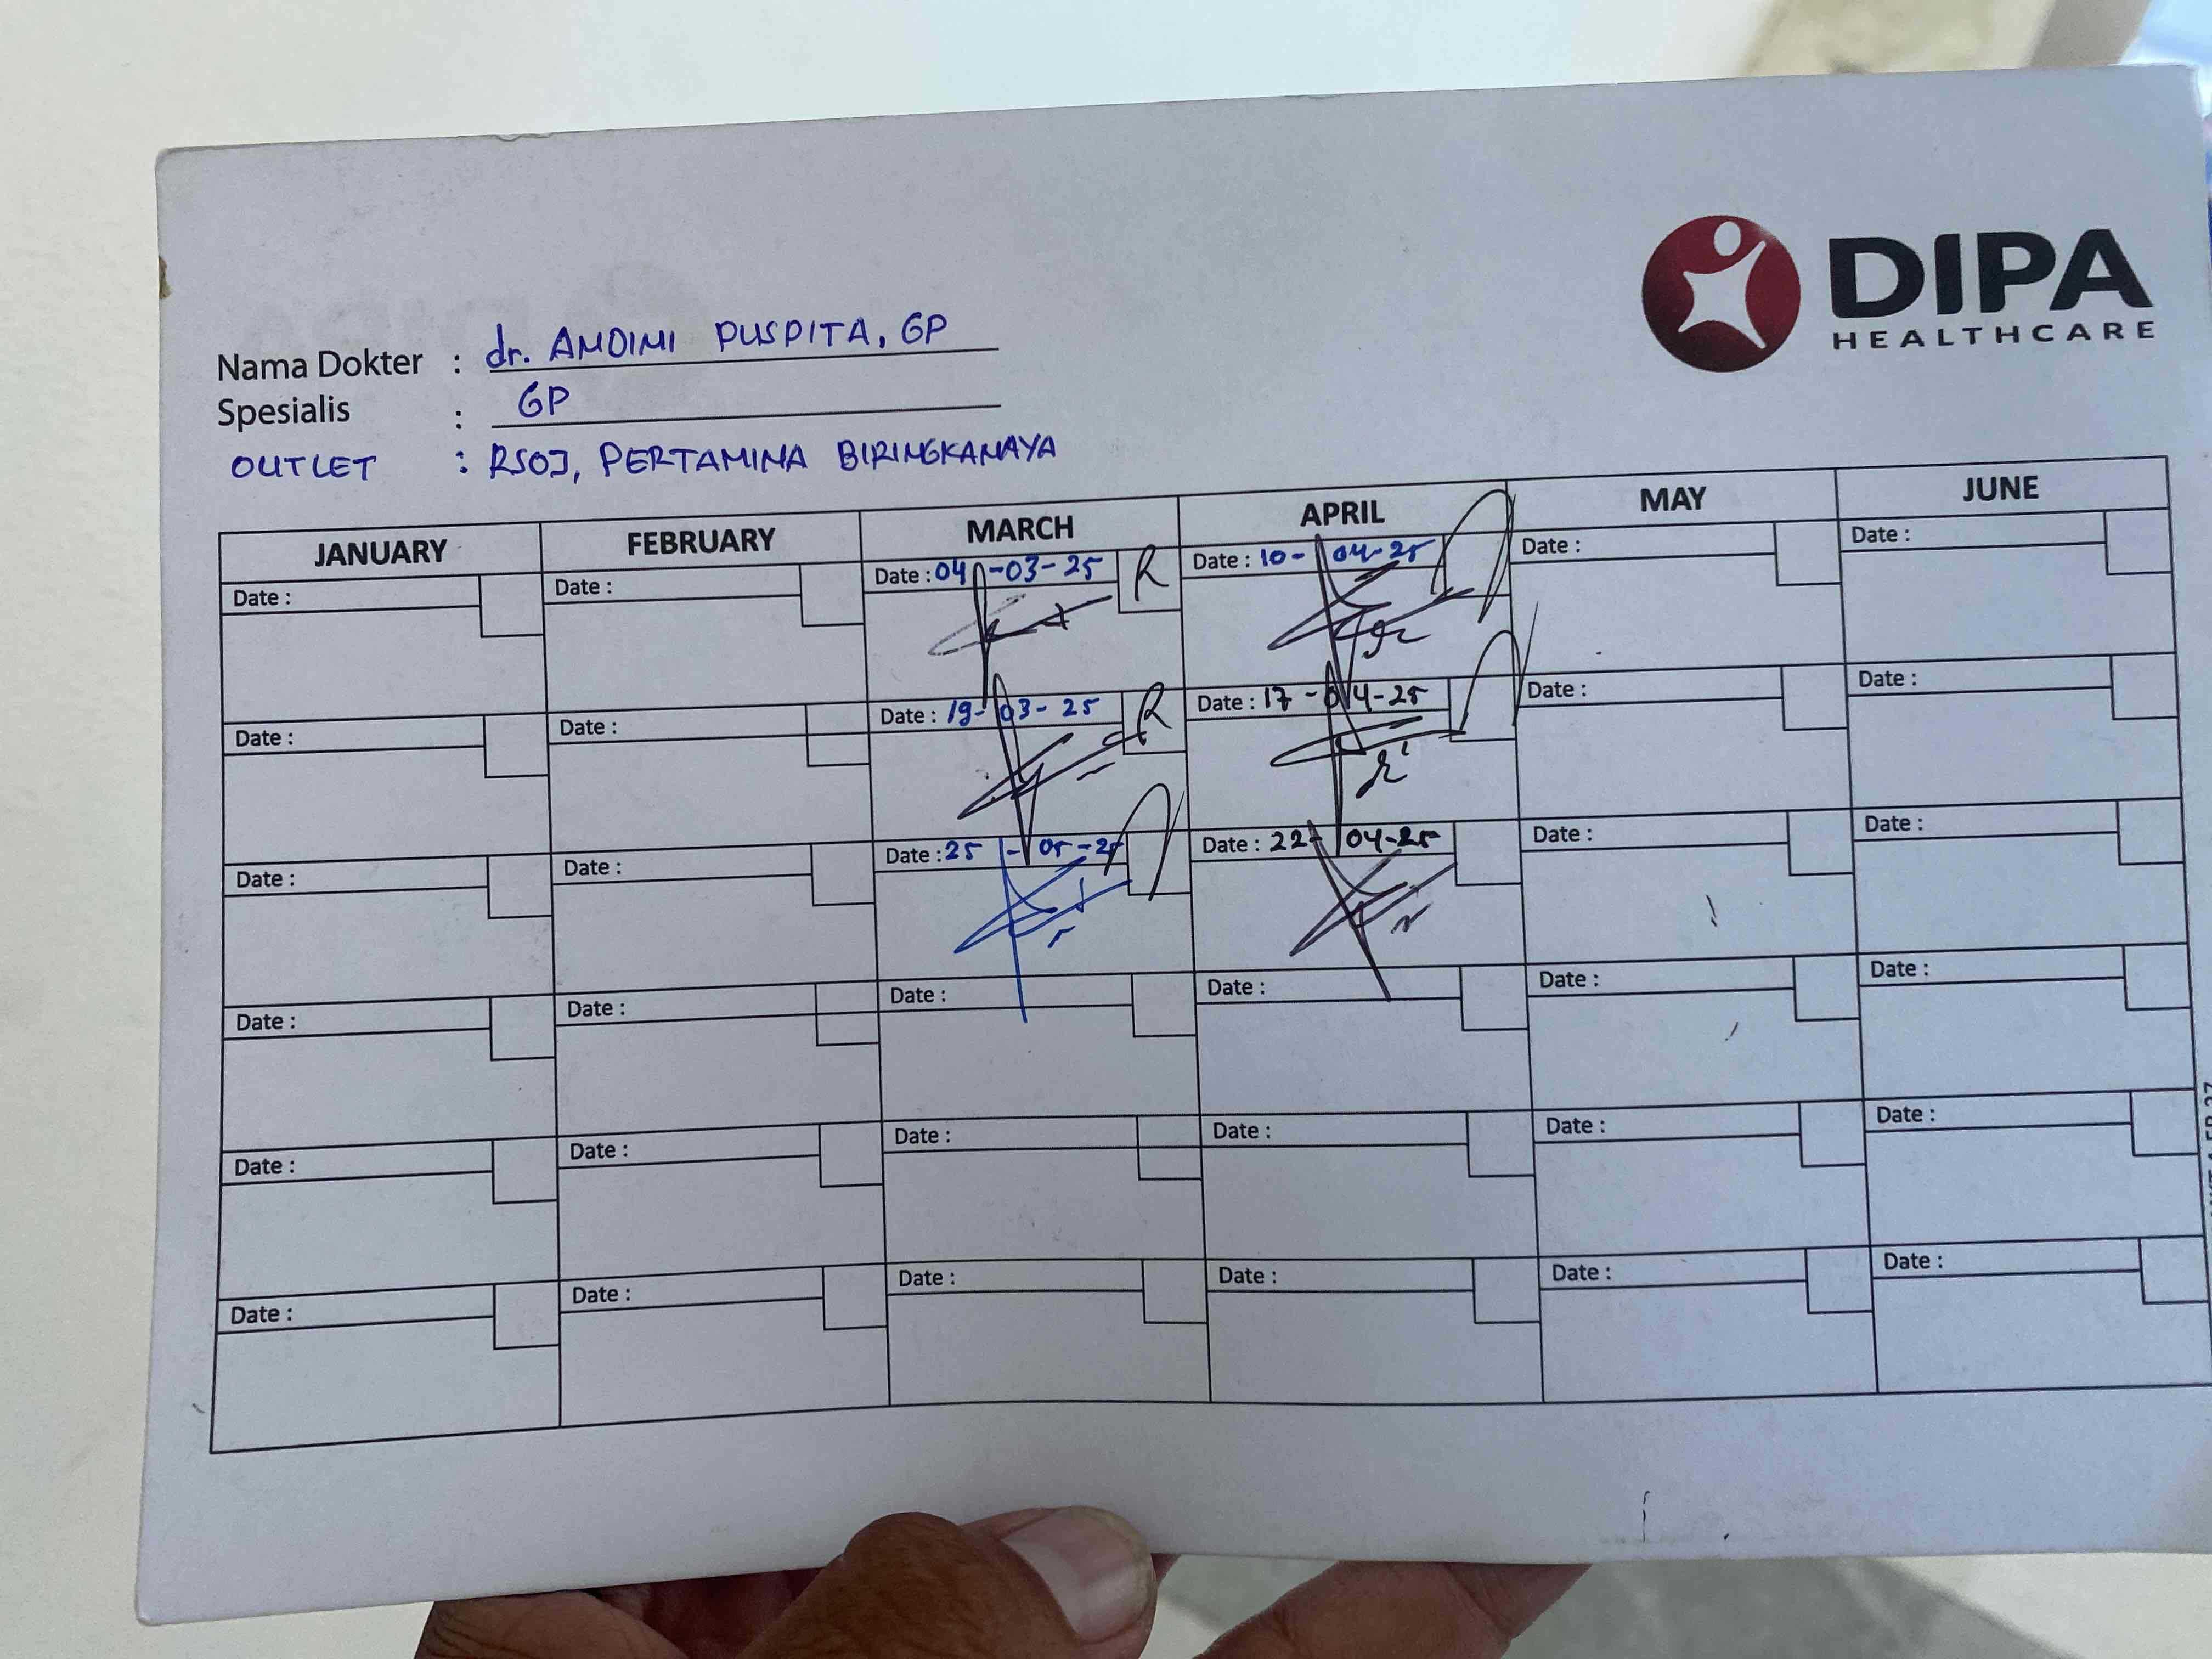 DIPA
HEALTHCARE
Nama Dokter : dr. ANDINI PUSPITA, GP
Spesialis : GP
OUTLET : RSOJ, PERTAMINA BIRINGKANAYA
JANUARY FEBRUARY MARCH APRIL MAY JUNE
Date : Date : Date : 04-03-25 R Date : 10-04-25 Date : Date :
Date : Date : Date : 19-03-25 R Date : 17-04-25 Date : Date :
Date : Date : Date : 25-05-25 Date : 22-04-25 Date : Date :
Date : Date : Date : Date : Date : Date :
Date : Date : Date : Date : Date : Date :
Date : Date : Date : Date : Date : Date :